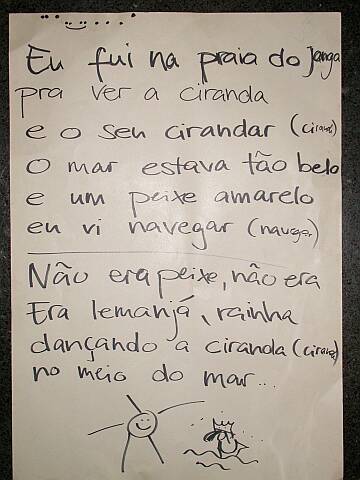 Eu fui na praia do Janga
pra ver a ciranda
e o seu cirandar (ciran)
O mar estava tão belo
e um peixe amarelo
eu vi navegar (navegar)
Não era peixe, não era
Era Iemanjá, rainha
dançando a ciranda (ciran)
no meio do mar...